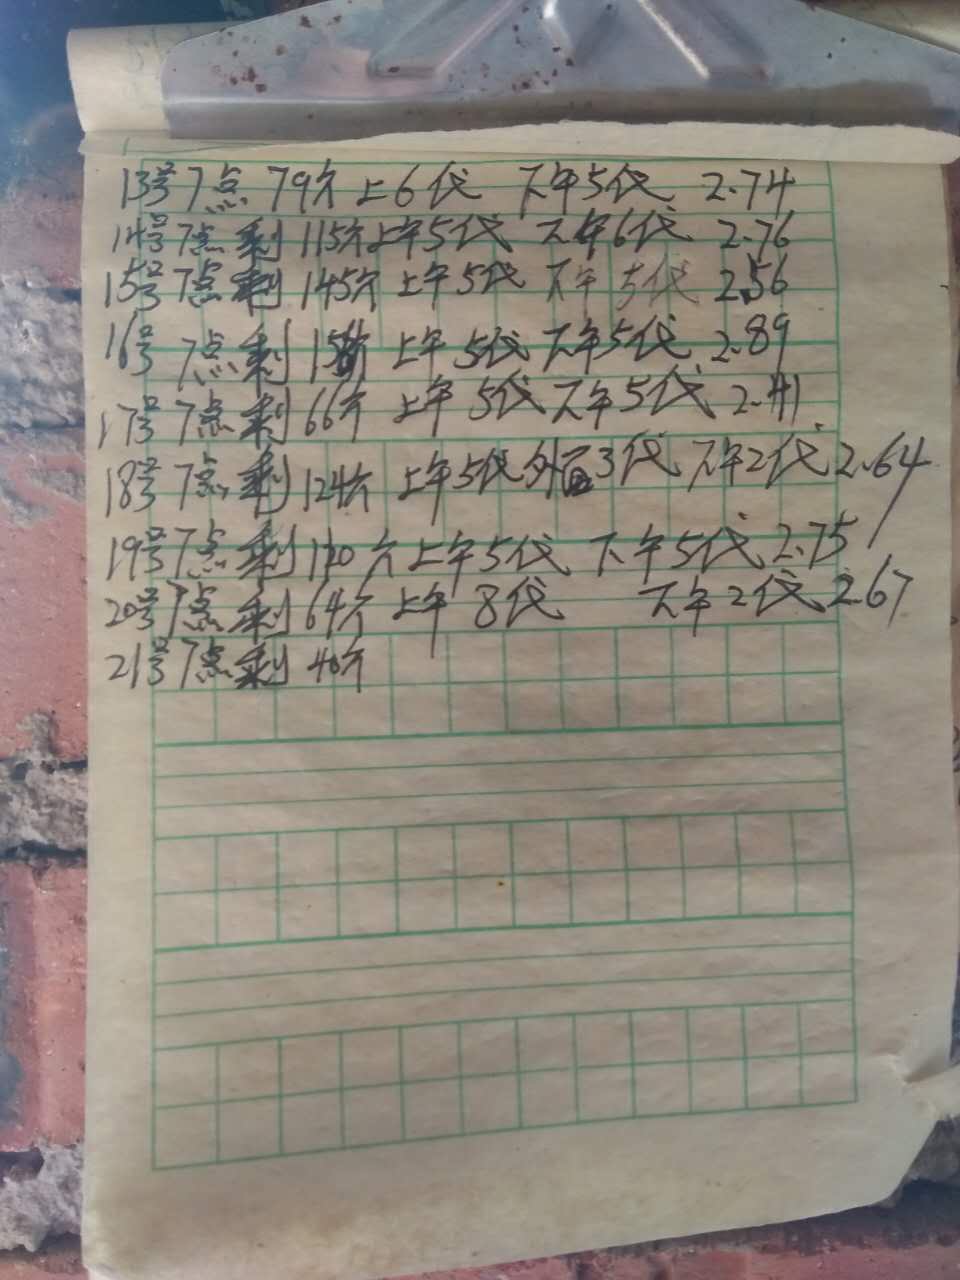 13号7点 79斤上6代 下午5代 2.74
14号7点剩115斤上午5代 下午6代 2.76
15号7点剩145斤上午5代 下午5代 2.56
16号7点剩 上午5代下午5代 2.89
17号7点剩66斤 上午5代下午5代 2.41
18号7点剩124斤 上午5代外 3代 下午2代 2.64
19号7点剩 斤上午5代 下午5代 2.75
20号7点剩64斤上午8代 下午2代 2.67
21号7点剩40斤